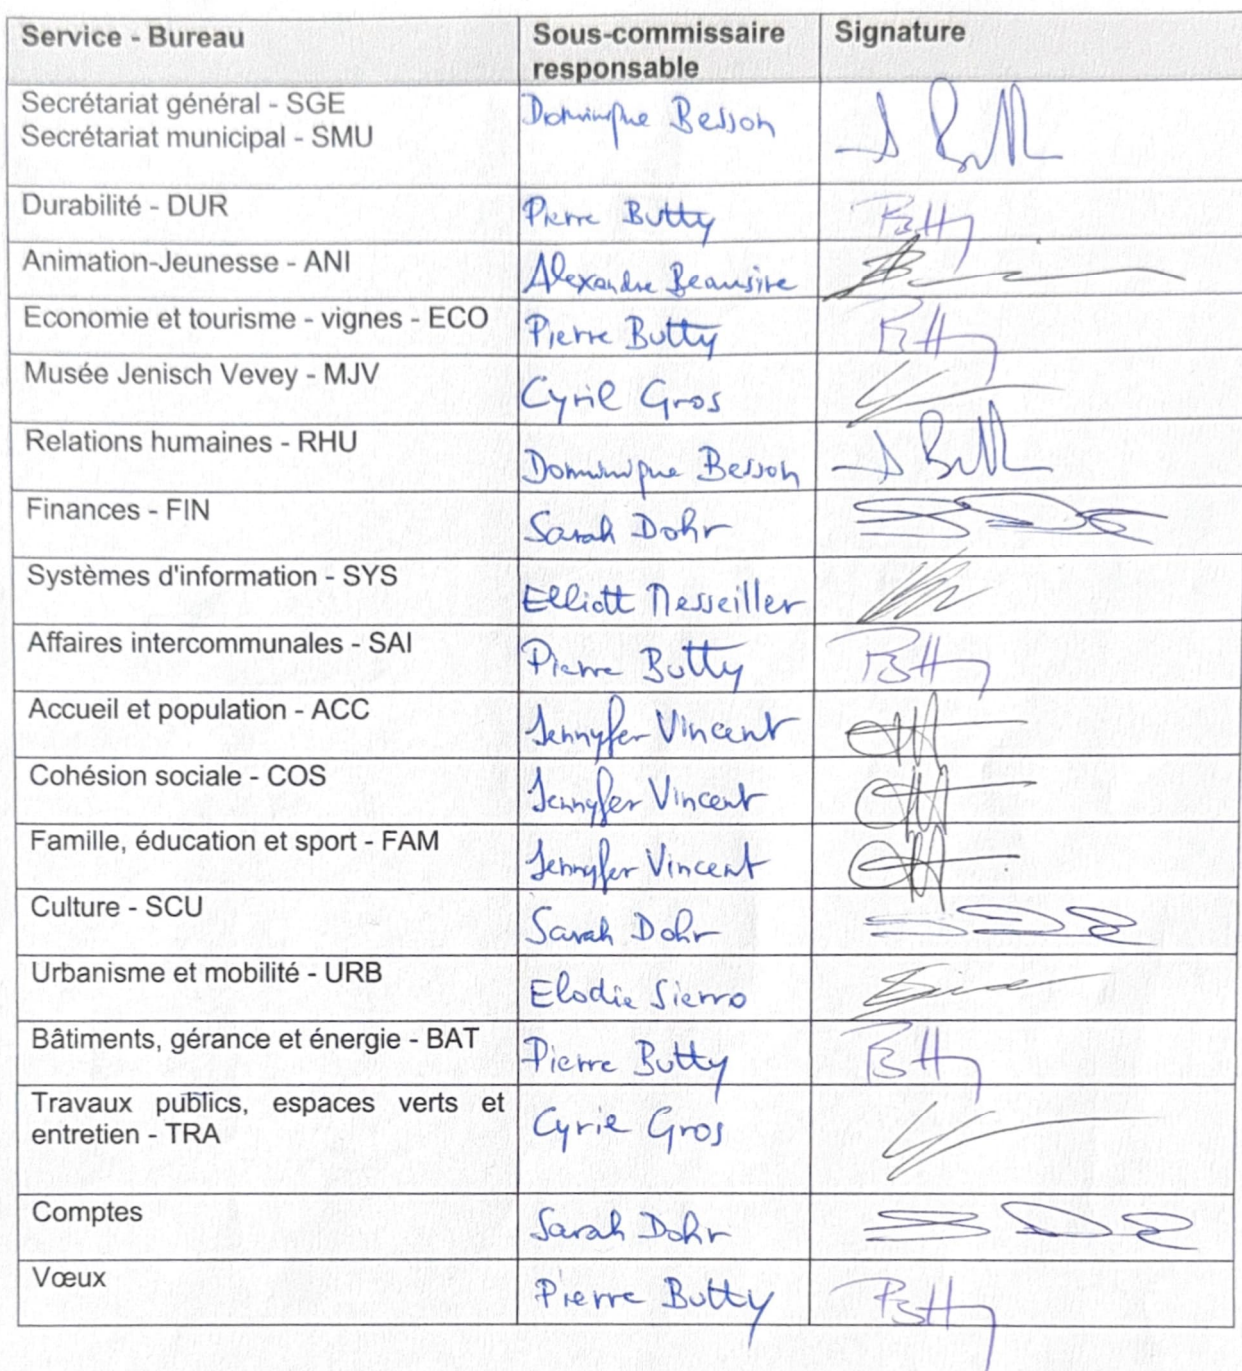 Service - Bureau
Sous-commissaire
responsable
Signature
Secrétariat général - SGE
Secrétariat municipal - SMU
Dominique Besson
Durabilité - DUR
Pierre Butty
Butty
Animation-Jeunesse - ANI
Alexandre Beausire
Economie et tourisme - vignes - ECO
Pierre Butty
Butty
Musée Jenisch Vevey - MJV
Cyril Gros
Relations humaines - RHU
Dominique Besson
Finances - FIN
Sarah Dohr
Systèmes d'information - SYS
Elliott Messeiller
Affaires intercommunales - SAI
Pierre Butty
Butty
Accueil et population - ACC
Jennyfer Vincent
Cohésion sociale - COS
Jennyfer Vincent
Famille, éducation et sport - FAM
Jennyfer Vincent
Culture - SCU
Sarah Dohr
Urbanisme et mobilité - URB
Elodie Sierro
Bâtiments, gérance et énergie - BAT
Pierre Butty
Butty
Travaux publics, espaces verts et
entretien - TRA
Cyril Gros
Comptes
Sarah Dohr
Vœux
Pierre Butty
Butty